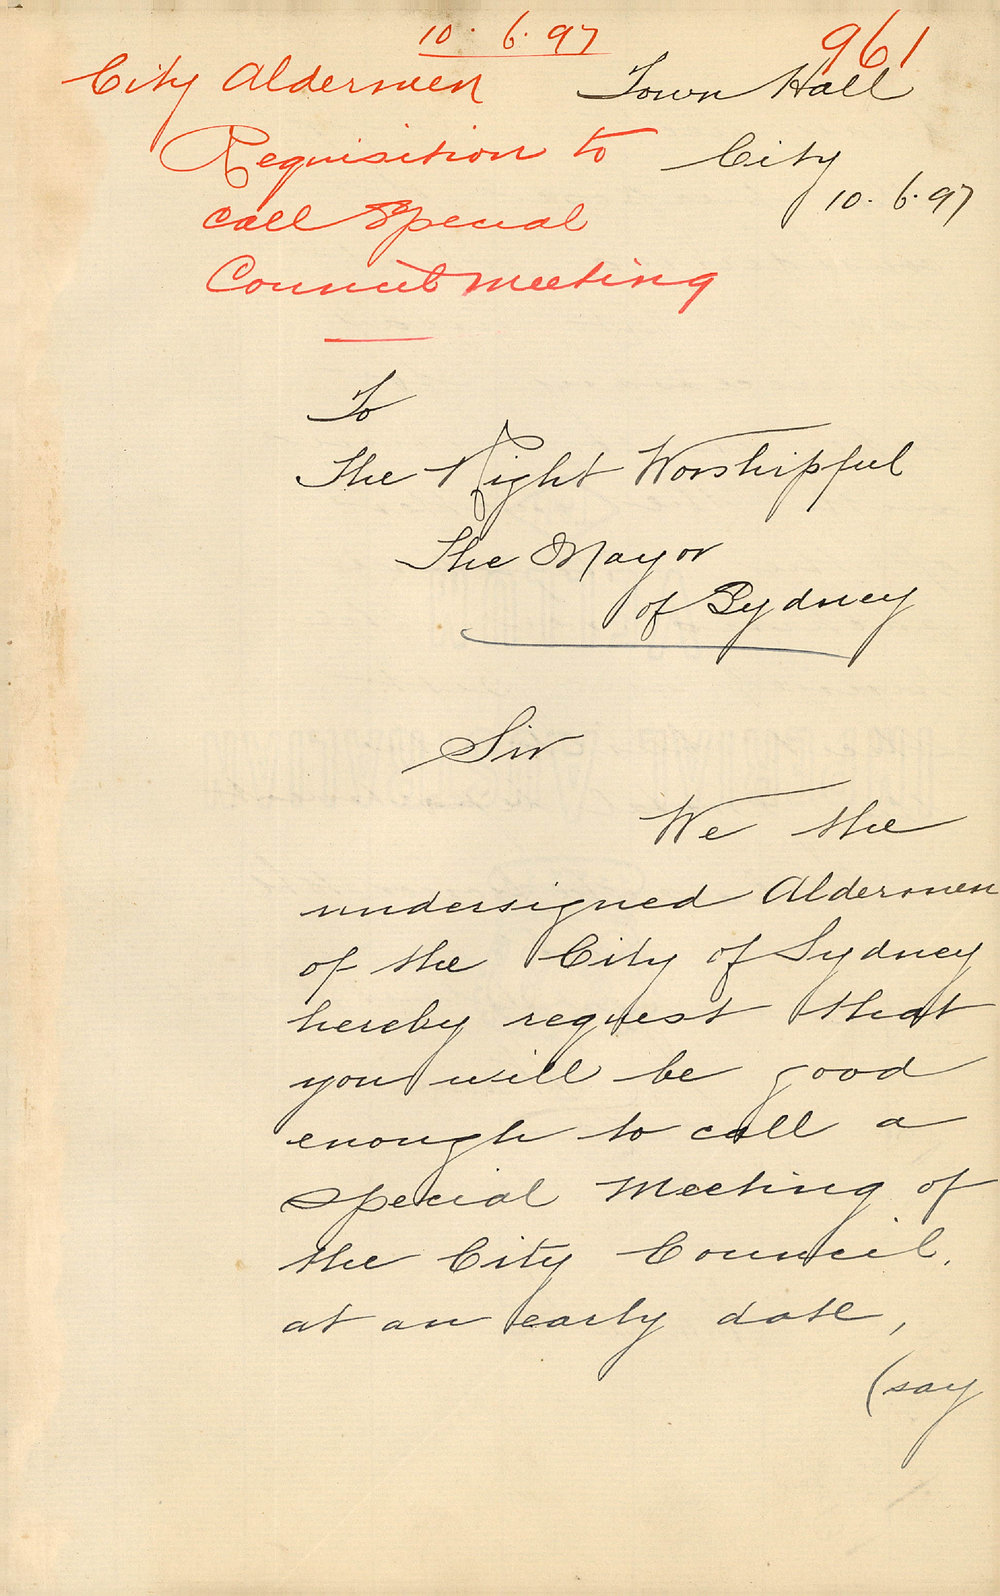 10. 6. 97
961
City Aldermen
Requisition to
call Special
Council meeting
Town Hall
City
10. 6. 97
To
The Right Worshipful
The Mayor
of Sydney
Sir
We the
undersigned Aldermen
of the City of Sydney
hereby request that
you will be good
enough to call a
special Meeting of
the City Council.
at an early date,
(say